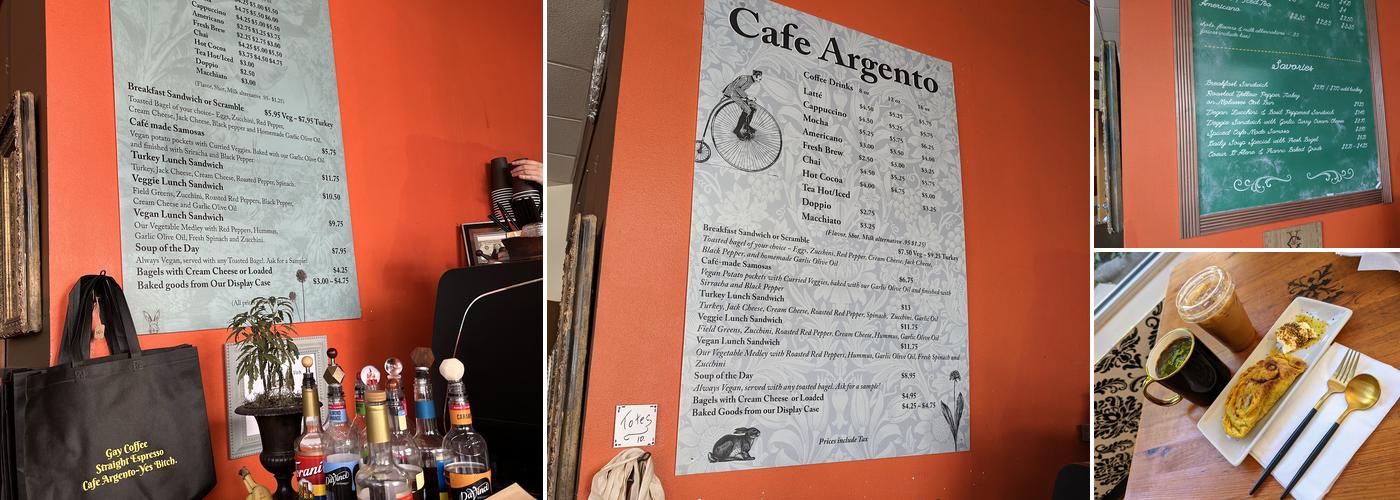 $4.25 $5.00 $5.50
Cappuccino $4.75 $5.50 $6.00
Americano $4.25 $5.00 $5.50
Fresh Brew $2.75 $3.25 $3.75
Chai $2.25 $2.75 $3.00
Hot Cocoa $4.25 $5.00 $5.50
Tea Hot/Iced $3.75 $4.50 $4.75
Doppio $3.00
Macchiato $2.50
$3.00
(Flavor, Shot, Milk alternative .95- $1.25)
Breakfast Sandwich or Scramble $5.95 Veg - $7.95 Turkey
Toasted Bagel of your choice- Eggs, Zucchini, Red Pepper,
Cream Cheese, Jack Cheese, Black pepper and Homemade Garlic Olive Oil.
Café made Samosas $5.75
Vegan potato pockets with Curried Veggies. Baked with our Garlic Olive Oil
and finished with Sriracha and Black Pepper
Turkey Lunch Sandwich $11.75
Turkey, Jack Cheese, Cream Cheese, Roasted Pepper, Spinach.
Veggie Lunch Sandwich $10.50
Field Greens, Zucchini, Roasted Red Peppers, Black Pepper,
Cream Cheese and Garlic Olive Oil
Vegan Lunch Sandwich $9.75
Our Vegetable Medley with Red Peppers, Hummus,
Garlic Olive Oil, Fresh Spinach and Zucchini.
Soup of the Day $7.95
Always Vegan, served with any Toasted Bagel. Ask for a Sample!
Bagels with Cream Cheese or Loaded $4.25
Baked goods from Our Display Case $3.00 – $4.75
(All pri
Gay Coffee
Straight Espresso
Cafe Argento-Yes Bitch.
DaVinci
DaVinci
Cafe Argento
Coffee Drinks 8 oz 12 oz 16 oz
Latté $4.50 $5.25 $5.75
Cappuccino $4.50 $5.25 $5.75
Mocha $5.25 $5.75 $6.25
Americano $3.00 $3.50 $4.00
Fresh Brew $2.50 $3.00
Chai $4.50 $5.25 $5.75
Hot Cocoa $4.00 $4.75 $5.00
Tea Hot/Iced $3.25
Doppio $2.75
Macchiato $3.25
(Flavor, Shot, Milk alternative .95 $1.25)
Breakfast Sandwich or Scramble $7.50 Veg - $9.25 Turkey
Toasted bagel of your choice - Eggs, Zucchini, Red Pepper, Cream Cheese, Jack Cheese,
Black Pepper, and homemade Garlic Olive Oil
Café-made Samosas $6.75
Vegan Potato pockets with Curried Veggies, baked with our Garlic Olive Oil and finished with
Sirracha and Black Pepper
Turkey Lunch Sandwich $13
Turkey, Jack Cheese, Cream Cheese, Roasted Red Pepper, Spinach, Zucchini, Garlic Oil
Veggie Lunch Sandwich $11.75
Field Greens, Zucchini, Roasted Red Pepper, Cream Cheese, Hummus, Garlic Olive Oil
Vegan Lunch Sandwich $11.75
Our Vegetable Medley with Roasted Red Peppers, Hummus, Garlic Olive Oil, Fresh Spinach and
Zucchini
Soup of the Day $8.95
Always Vegan, served with any toasted bagel. Ask for a sample!
Bagels with Cream Cheese or Loaded $4.95
Baked Goods from our Display Case $4.25 – $4.75
Prices include Tax
Totes
10.
Iced Tea
Americano
Savories
Breakfast Sandwich
Roasted Yellow Pepper Turkey
Vegan Zucchini & Basil Peppered Sandwich
Veggie Sandwich with Garlic Curry Cream Cheese
Spiced Cafe Made Samosa
Daily Soup Special with Fresh Bagel
Coeur D'Alene & Pranna Baked Goods